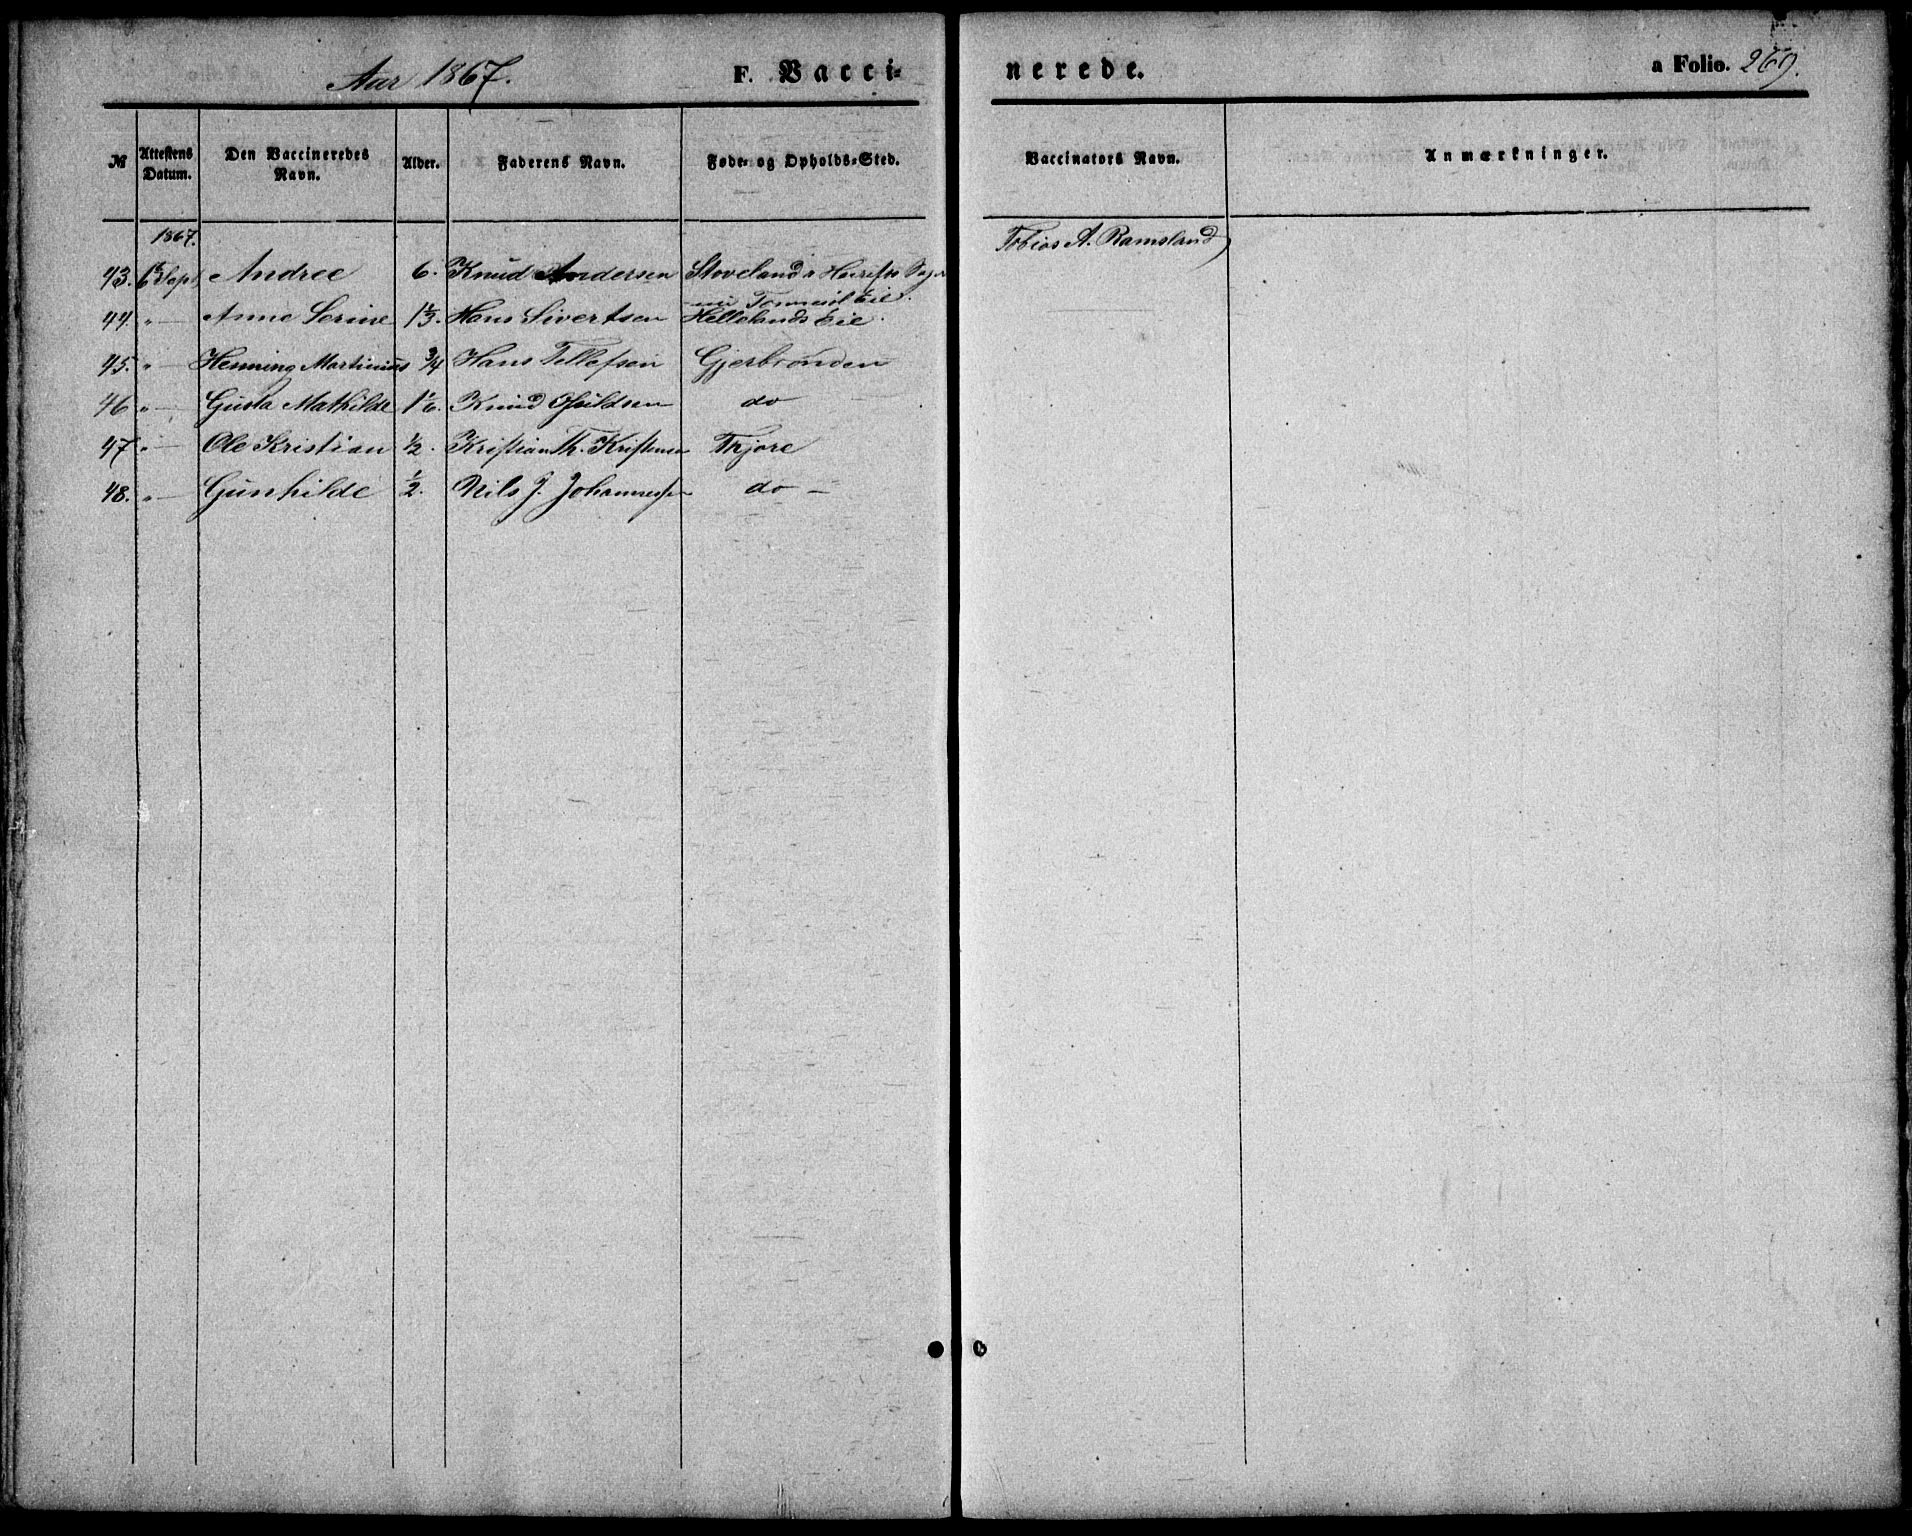 Aar 1867. F. Vacci-
nerede. a Folio. 269.
№ Attestens Datum. Den Vaccineredes Navn. Alder. Faderens Navn. Føde- og Opholds-Sted. Vaccinators Navn. Anmærkninger.
1867. Tobias A. Ramsland
43. Sept Andree 6. Knud Andersen Stoveland
44. " — Anne Serine 1 1/3 Hans Sivertsen Hellelands Eie.
45. " — Henning Martinius 3/4 Hans Tellefsen Gjerbrønden
46 " — Gusta Mathilde 1 1/6. Knud do
47 " — Ole Kristian 1/2. Kristian Th. Kristensen Thjore
48. " — Gunhilde 1/2. Nils J. Johannessen do —